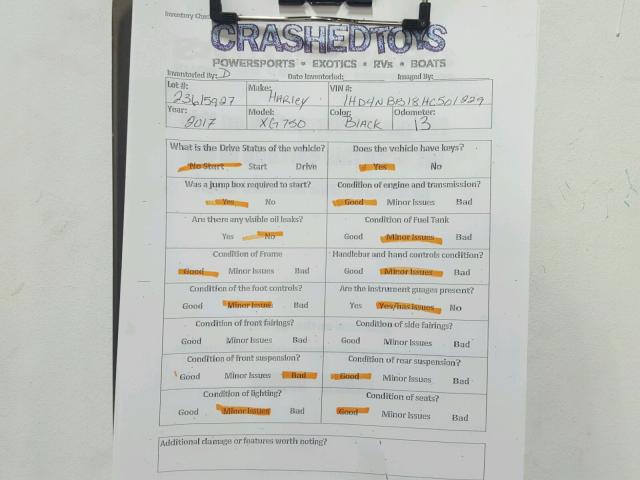 Inventory Chec
CRASHEDTOYS
POWERSPORTS • EXOTICS • RVs • BOATS
Inventoried By: D Date Inventoried: Imaged By:
Lot #: Make: VIN #:
23615927 HARLEY 1HD4NBB18HC501229
Year: Model: Color: Odometer:
2017 XG750 BLACK 13
What is the Drive Status of the vehicle? Does the vehicle have keys?
No Start Start Drive Yes No
Was a jump box required to start? Condition of engine and transmission?
Yes No Good Minor Issues Bad
Are there any visible oil leaks? Condition of Fuel Tank
Yes No Good Minor Issues Bad
Condition of Frame Handlebar and hand controls condition?
Good Minor Issues Bad Good Minor Issues Bad
Condition of the foot controls? Are the instrument guages present?
Good Minor Issues Bad Yes Yes/has issues No
Condition of front fairings? Condition of side fairings?
Good Minor Issues Bad Good Minor Issues Bad
Condition of front suspension? Condition of rear suspension?
Good Minor Issues Bad Good Minor Issues Bad
Condition of lighting? Condition of seats?
Good Minor Issues Bad Good Minor Issues Bad
Additional damage or features worth noting?